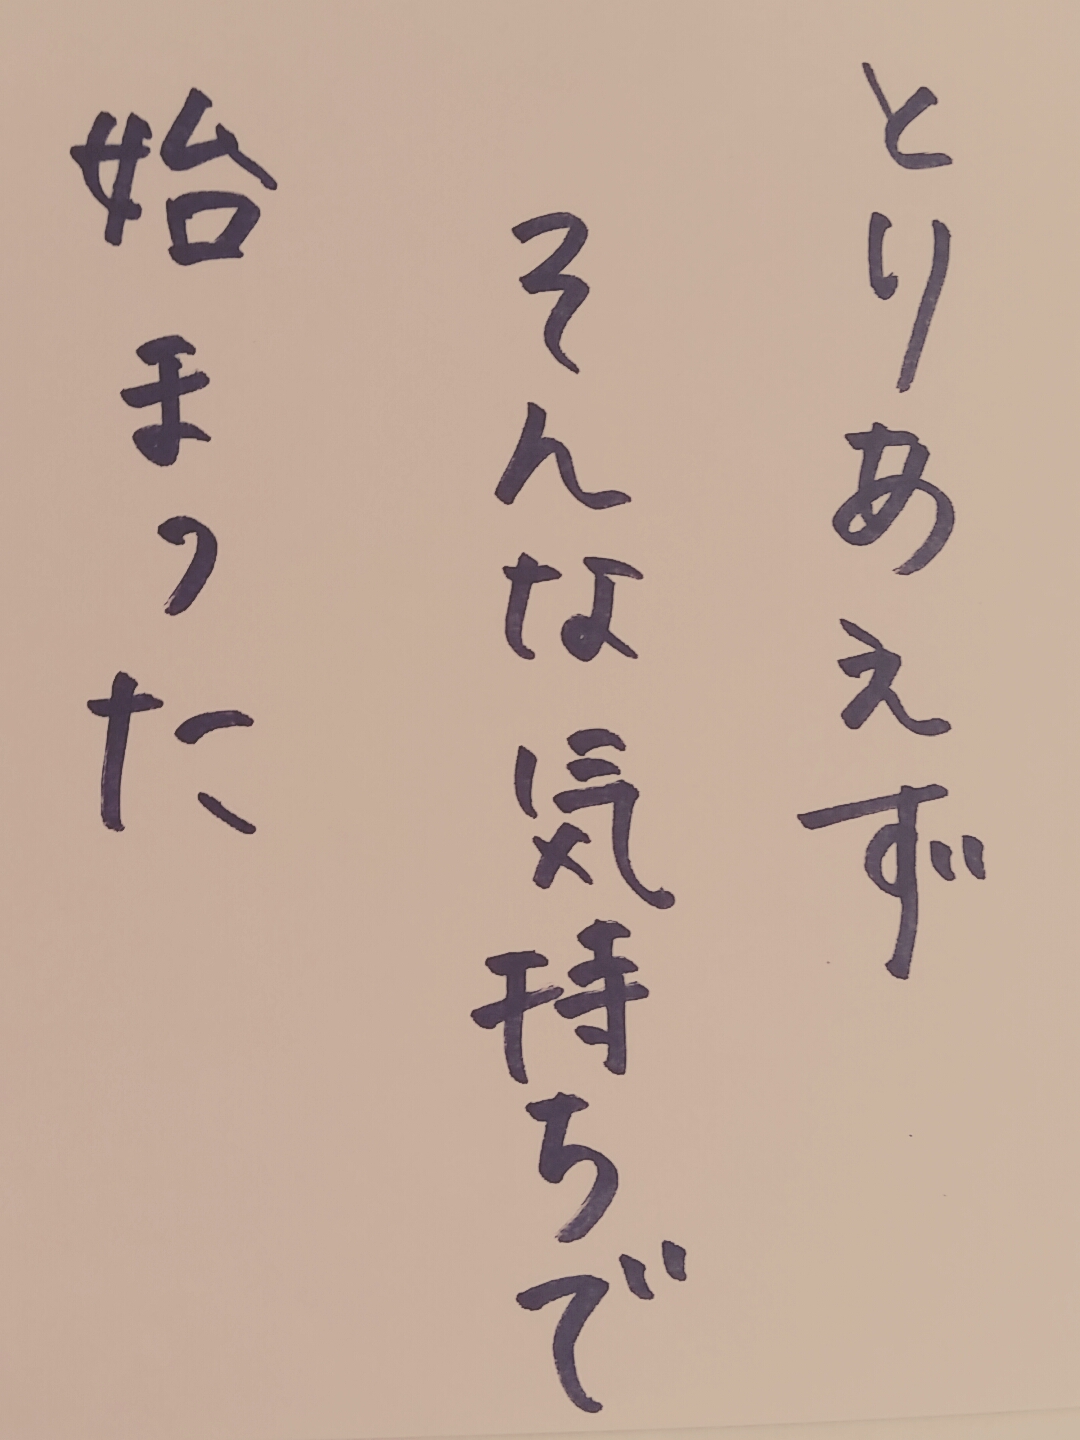 とりあえず
そんな気持ちで
始まった